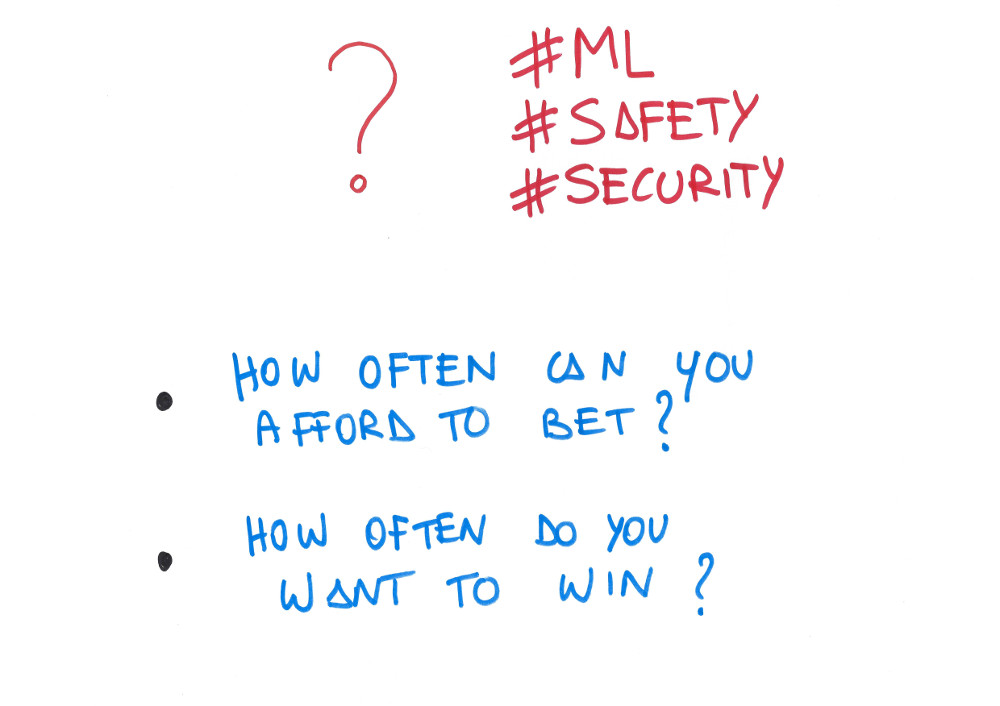 ?
#ML
#SAFETY
#SECURITY
• HOW OFTEN CAN YOU
AFFORD TO BET?
• HOW OFTEN DO YOU
WANT TO WIN?